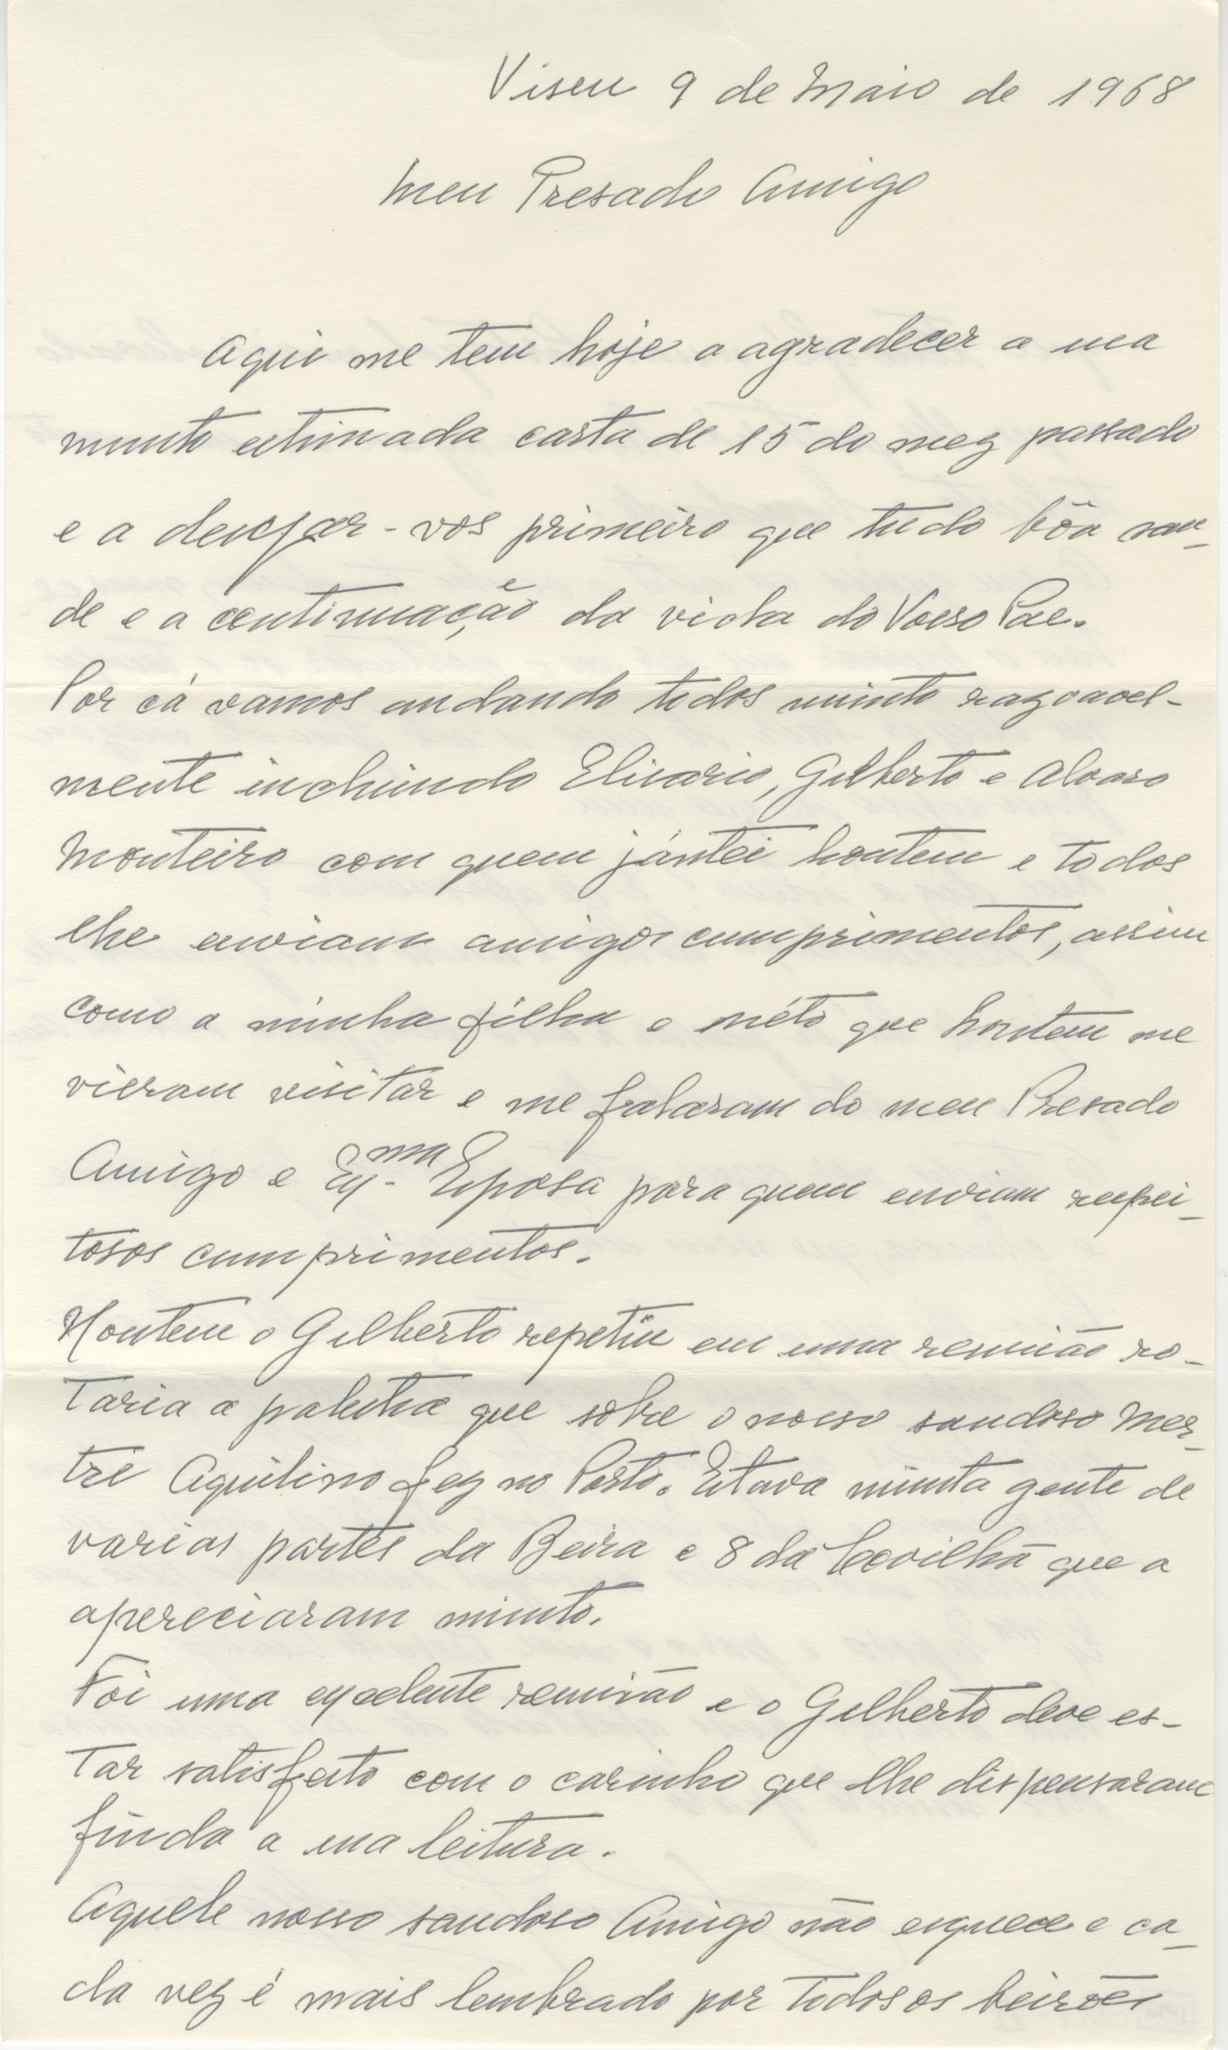 Viseu 9 de Maio de 1968
Meu Presado Amigo
Aqui me tem hoje a agradecer a sua
muito estimada carta de 15 do mez passado
e a desejar-vos primeiro que tudo bôa sau-
de e a continuação da vida do Vosso Pae.
Por cá vamos andando todos muito razoavel-
mente incluindo Elisario, Gilberto e Alvaro
Monteiro com quem jántei hontem e todos
lhe enviam amigos cumprimentos, assim
como a minha filha e néto que hontem me
vieram visitar e me falaram do meu Presado
Amigo e Ex.ma Esposa para quem enviam respei-
tosos cumprimentos.
Hontem o Gilberto repetiu em uma reunião ro-
taria a palestra que sobre o nosso saudoso Mes-
tre Aquilino fez no Porto. Estava muita gente de
varias partes da Beira e 8 da Covilhã que a
apereciaram muito.
Foi uma excelente reunião e o Gilberto deve es-
tar satisfeito com o carinho que lhe dispensaram
finda a sua leitura.
Aquele nosso saudoso Amigo não esquece e ca-
da vez é mais lembrado por todos os beirões